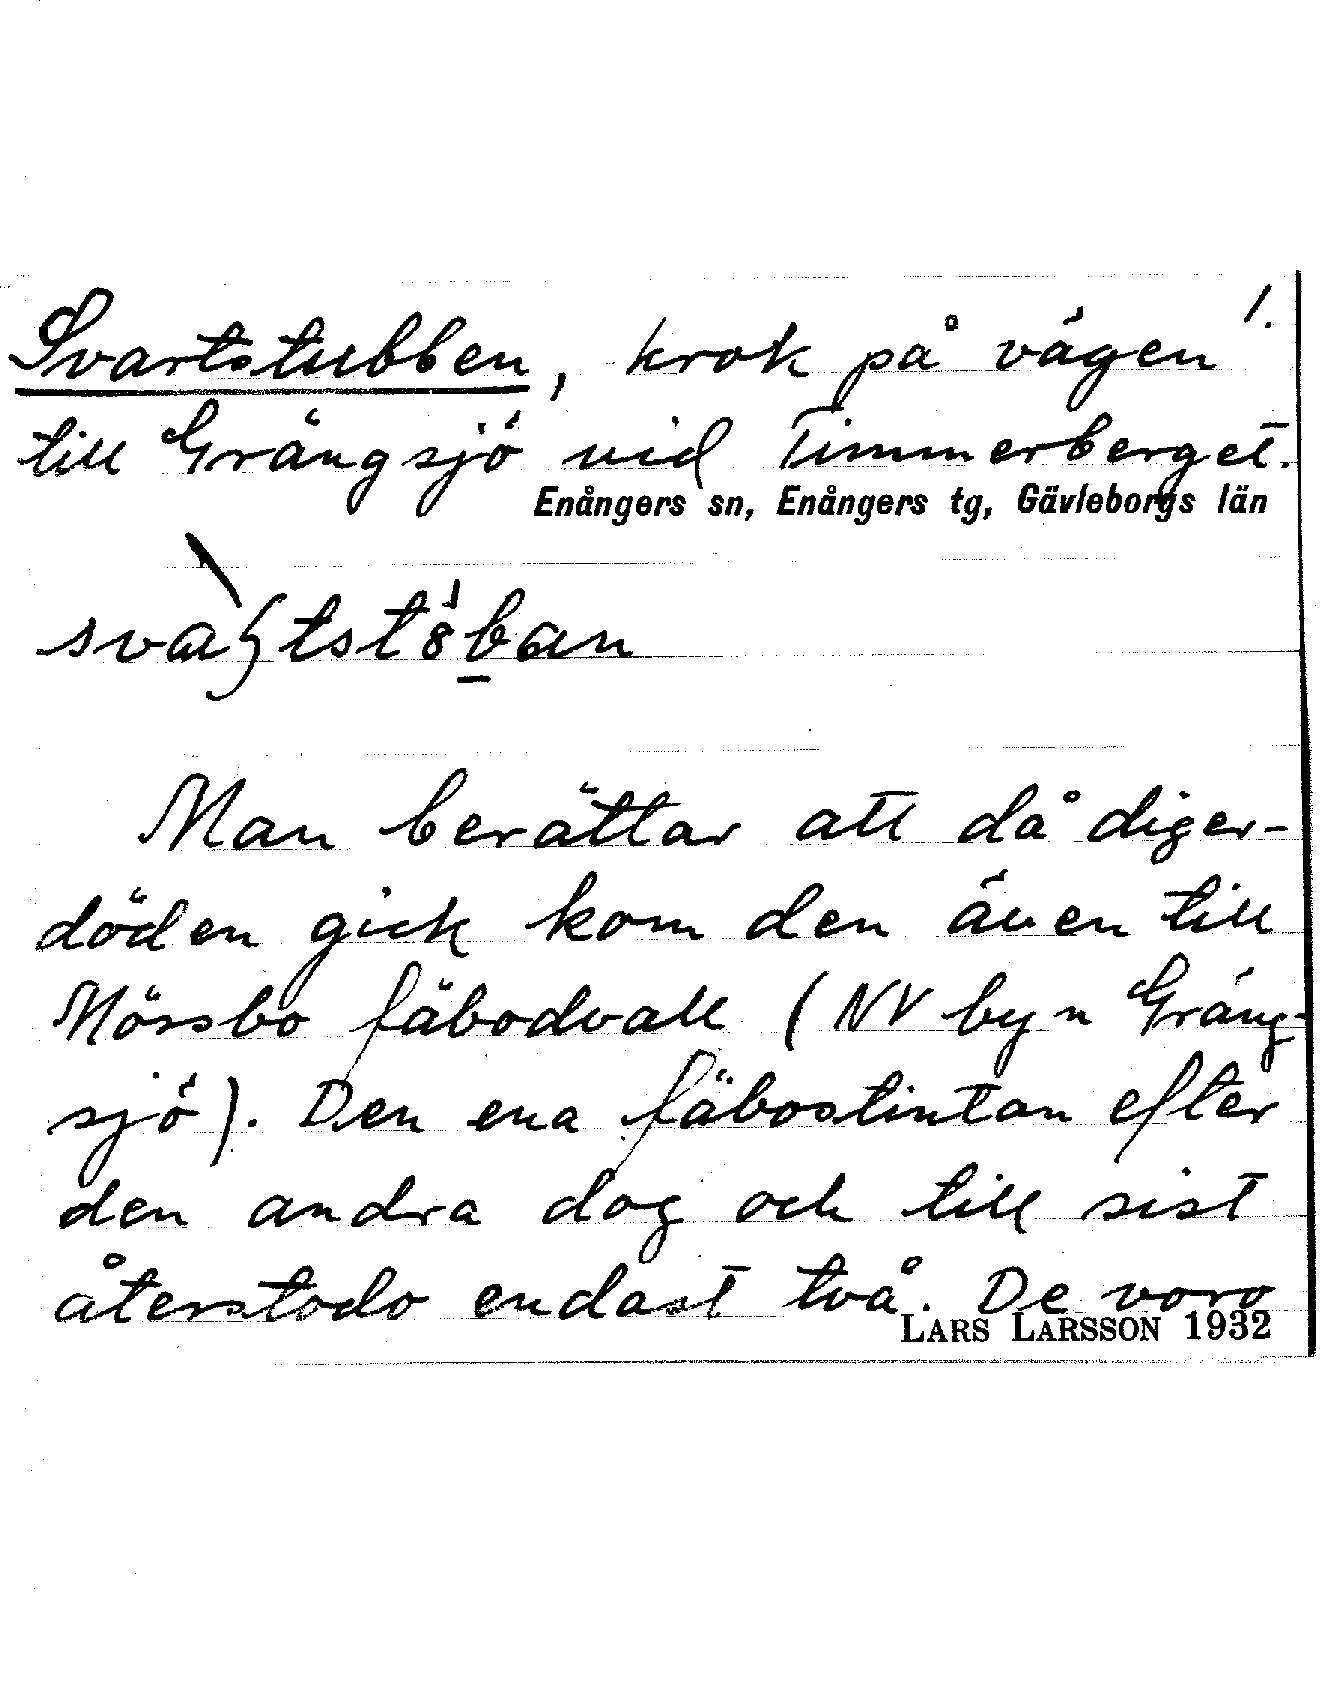 1.
Svartstubben, krok på vägen
till Grängsjö vid Timmerberget.
Enångers sn, Enångers tg, Gävleborgs län
Man berättar att då diger-
döden gick kom den även till
Mössbo fäbodvall (NV byn Gräng-
sjö). Den ena fäbostintan efter
den andra dog och till sist
återstodo endast två. De voro
LARS LARSSON 1932